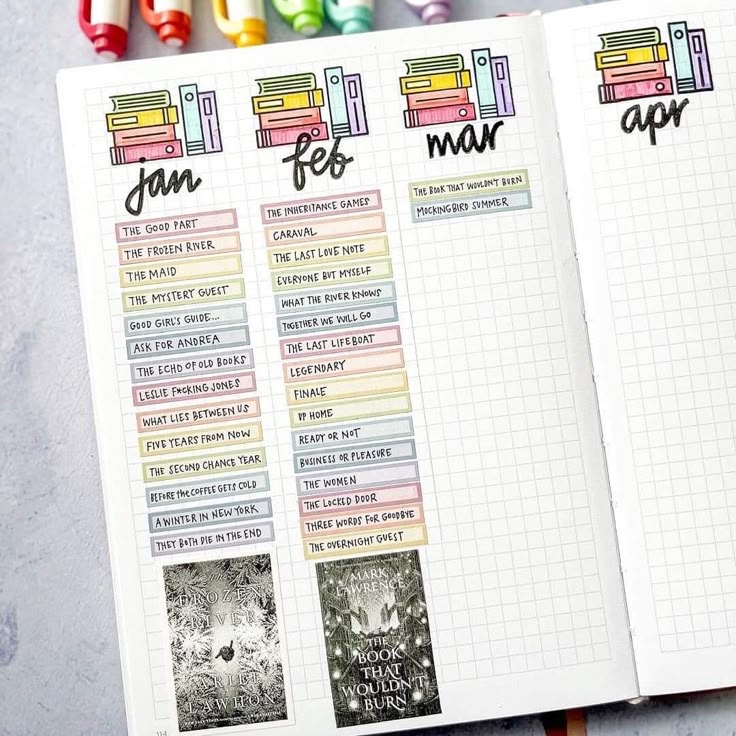 jan
THE GOOD PART
THE FROZEN RIVER
THE MAID
THE MYSTERY GUEST
GOOD GIRL'S GUIDE...
ASK FOR ANDREA
THE ECHO OF OLD BOOKS
LESLIE F*CKING JONES
WHAT LIES BETWEEN US
FIVE YEARS FROM NOW
THE SECOND CHANCE YEAR
BEFORE THE COFFEE GETS COLD
A WINTER IN NEW YORK
THEY BOTH DIE IN THE END
The
FROZEN
RIVER
ARIEL
LAWHON
feb
THE INHERITANCE GAMES
CARAVAL
THE LAST LOVE NOTE
EVERYONE BUT MYSELF
WHAT THE RIVER KNOWS
TOGETHER WE WILL GO
THE LAST LIFEBOAT
LEGENDARY
FINALE
UP HOME
READY OR NOT
BUSINESS OR PLEASURE
THE WOMEN
THE LOCKED DOOR
THREE WORDS FOR GOODBYE
THE OVERNIGHT GUEST
MARK
LAWRENCE
THE
BOOK
THAT
WOULDN'T
BURN
mar
THE BOOK THAT WOULDN'T BURN
MOCKINGBIRD SUMMER
apr